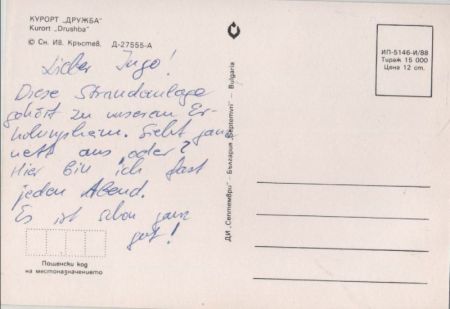 КУРОРТ „ДРУЖБА"
Kurort „Drushba"
© Сн. Ив. Кръстев. Д-27555-А
Lieber Ingo!
Diese Strandanlage
gehört zu unserem Er-
holungsheim. Sieht ganz
nett aus, oder?
Hier bin ich fast
jeden Abend.
Es ist schon ganz
gut!
Пощенски код
на местоназначението
ДИ „Септември" – България „Septemvri" – Bulgaria
ИП–5146–И/88
Тираж 15 000
Цена 12 ст.